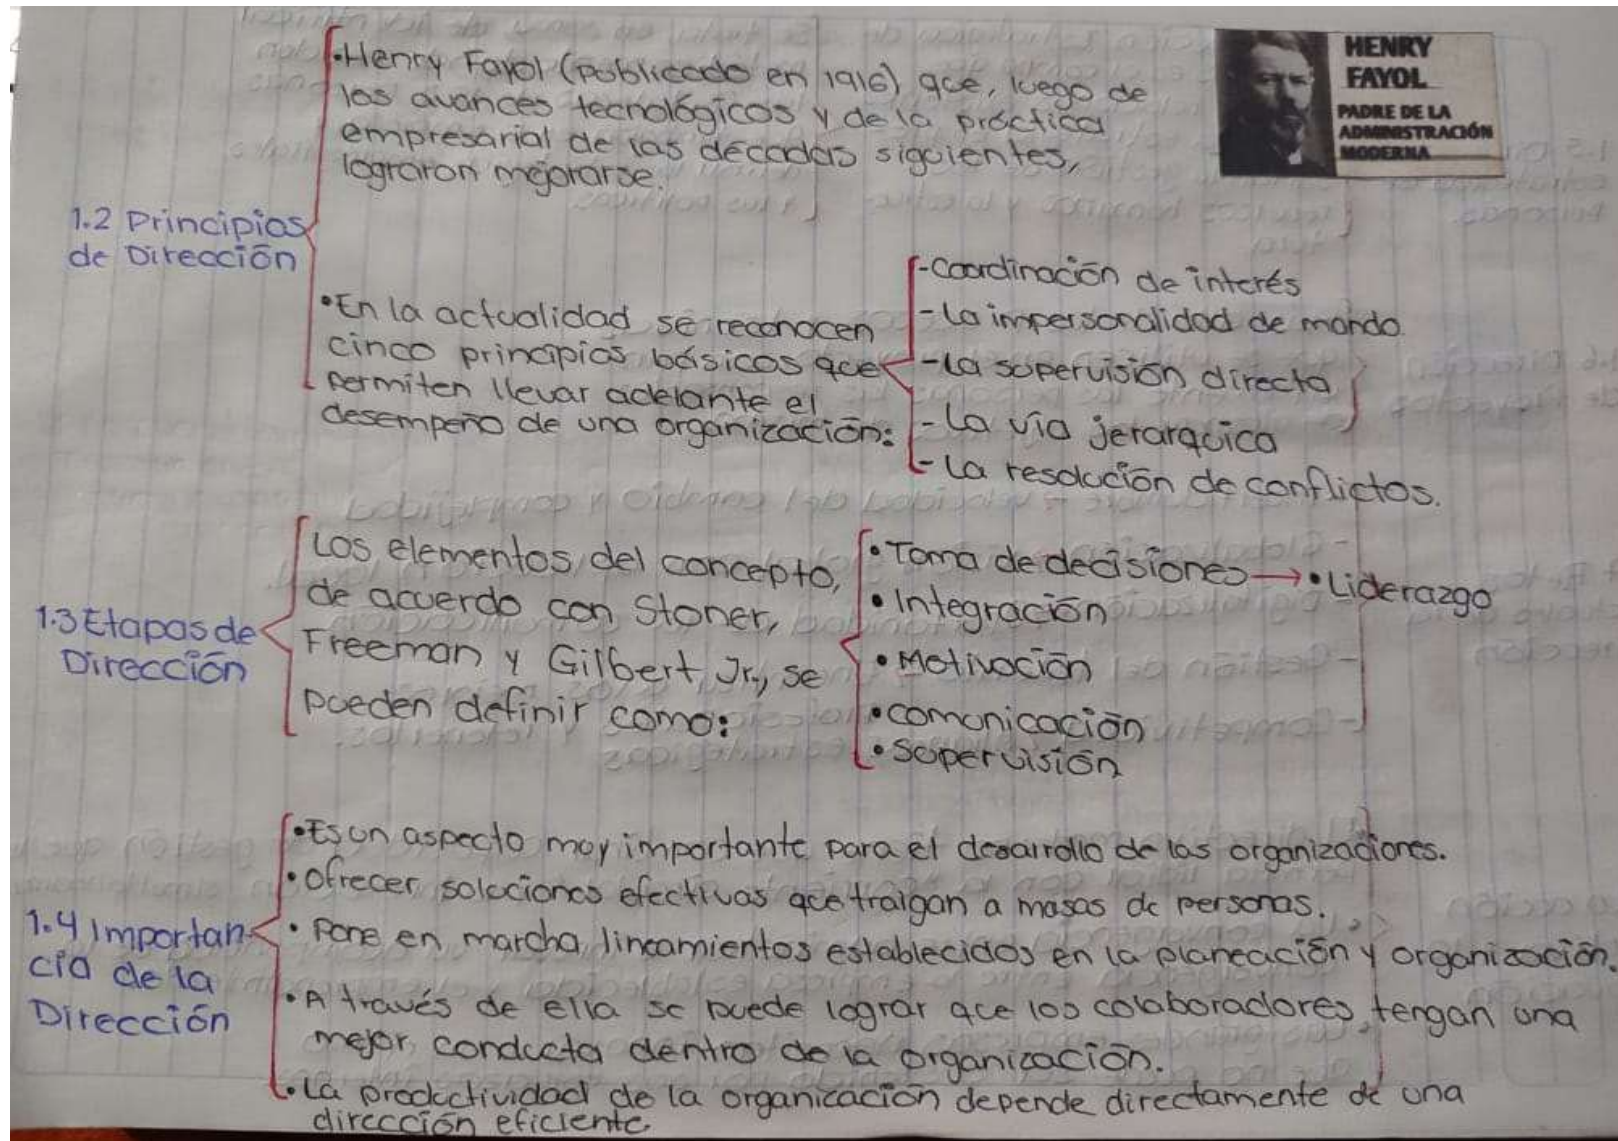 HENRY
FAYOL
PADRE DE LA
ADMINISTRACIÓN
MODERNA
1.2 Principios
de Dirección
•Henry Fayol (publicado en 1916) que, luego de
los avances tecnológicos y de la práctica
empresarial de las décadas siguientes,
lograron mejorarse.
•En la actualidad se reconocen
cinco principios básicos que
permiten llevar adelante el
desempeño de una organización:
-Coordinación de interés
-La impersonalidad de mando
-La supervisión directa
-La vía jerarquica
-La resolución de conflictos.
1.3 Etapas de
Dirección
Los elementos del concepto,
de acuerdo con Stoner,
Freeman y Gilbert Jr., se
pueden definir como:
•Toma de decisiones→•Liderazgo
•Integración
•Motivación
•comunicación
•Supervisión
1.4 Importan-
cia de la
Dirección
•Es un aspecto muy importante para el desarrollo de las organizaciones.
•Ofrecer soluciones efectivas que traigan a masas de personas.
•Pone en marcha lineamientos establecidos en la planeación y organización.
•A través de ella se puede lograr que los colaboradores tengan una
mejor conducta dentro de la organización.
•La productividad de la organización depende directamente de una
dirección eficiente